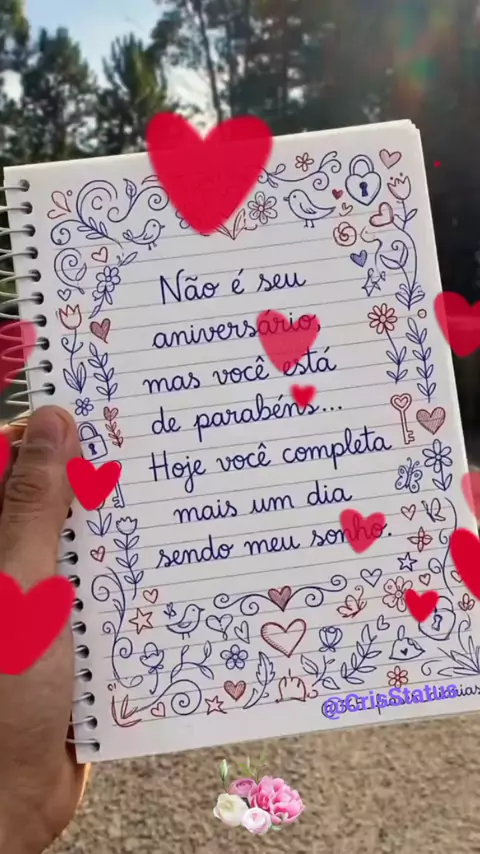 Não é seu
aniversário,
mas você está
de parabéns...
Hoje você completa
mais um dia
sendo meu sonho.
@CrisStatus